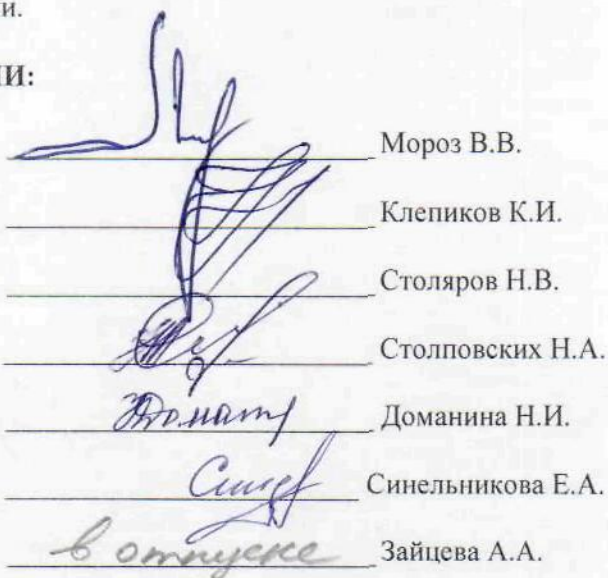 и.
ИИ:
Мороз В.В.
Клепиков К.И.
Столяров Н.В.
Столповских Н.А.
Доманина Н.И.
Синельникова Е.А.
в отпуске Зайцева А.А.